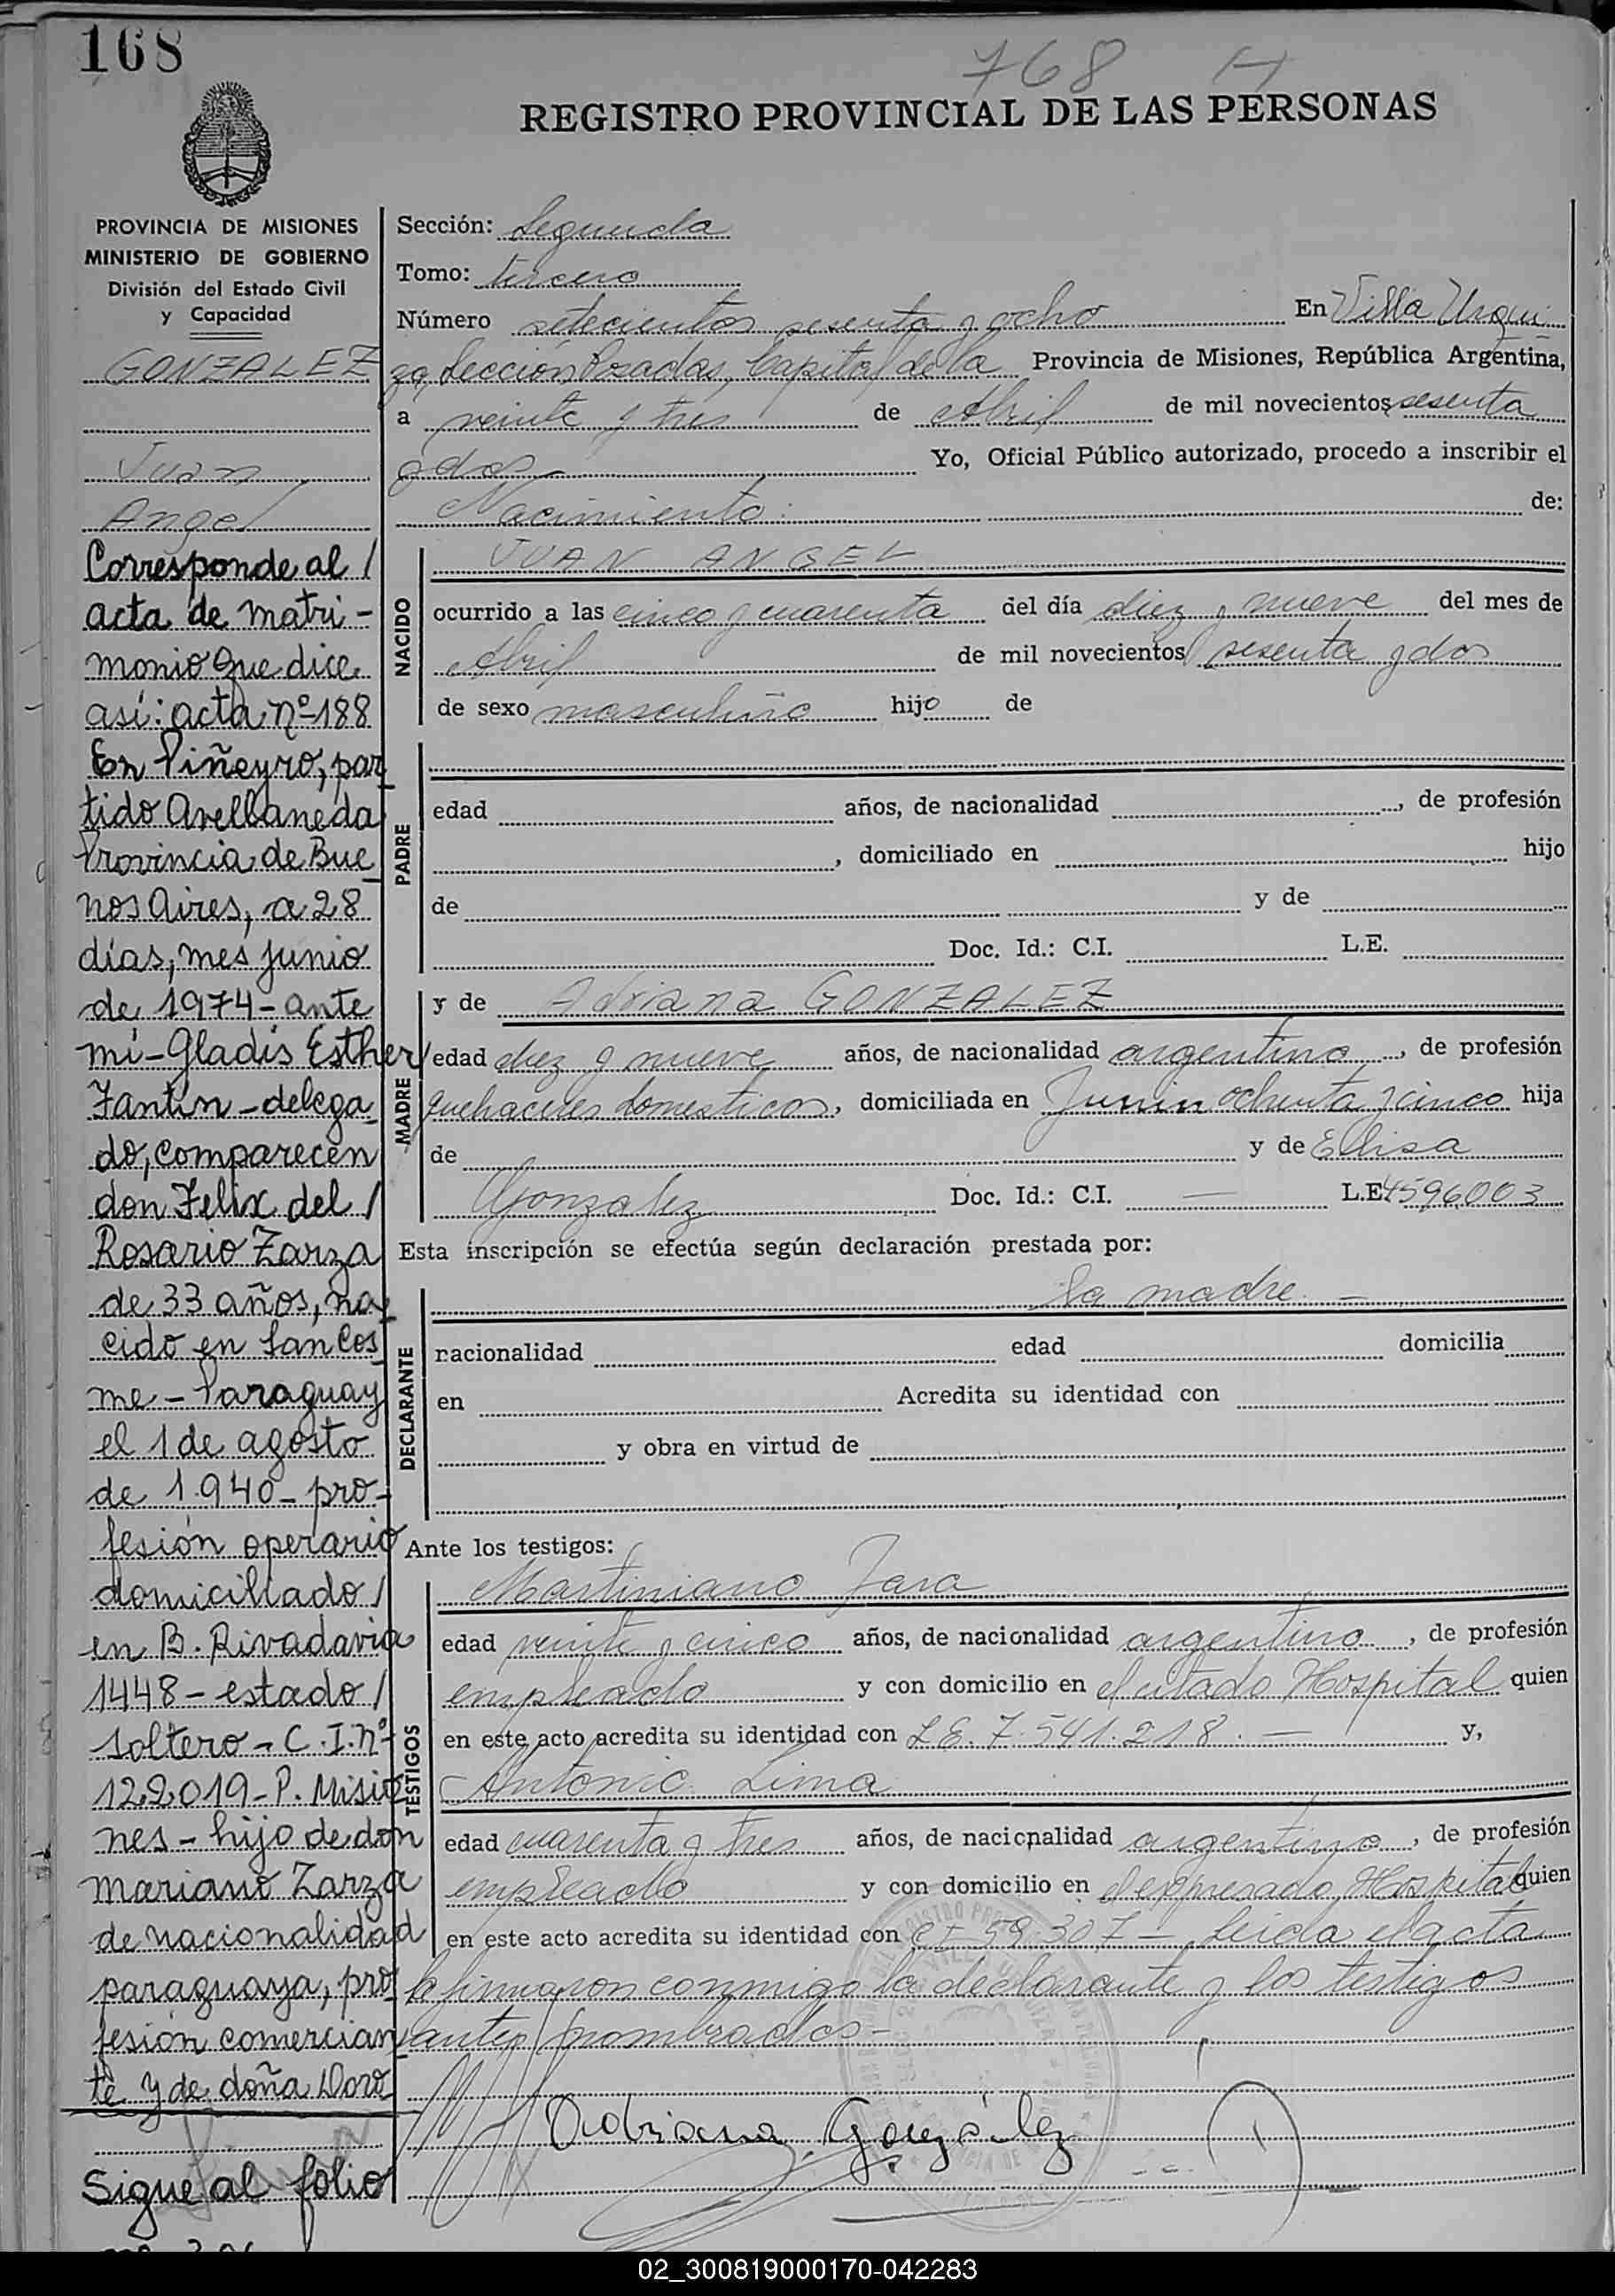 168
768
REGISTRO PROVINCIAL DE LAS PERSONAS
PROVINCIA DE MISIONES
MINISTERIO DE GOBIERNO
División del Estado Civil
y Capacidad
GONZALEZ
Juan
Angel
Corresponde al /
acta de matri-
monio que dice
así: acta nº 188
En Piñeyro, par
tido Avellaneda
Provincia de Bue
nos Aires, a 28
días, mes junio
de 1974 - ante
mí - Gladis Esther
Fantín - delega
do, comparecen
don Felix del /
Rosario Zarza
de 33 años, na
cido en San Cos
me - Paraguay
el 1 de agosto
de 1.940 - pro-
fesión operario
domiciliado /
en B. Rivadavia
1448 - estado /
soltero - C.I. nº
122.019 - P. Misio
nes - hijo de don
Mariano Zarza
de nacionalidad
paraguaya, pro
fesión comercian
te y de doña Doro
Sigue al folio
Sección: Segunda
Tomo: tercero
Número setecientos sesenta y ocho En Villa Urqui
za, Sección Posadas, Capital de la Provincia de Misiones, República Argentina,
a veinte y tres de Abril de mil novecientos sesenta
y dos - Yo, Oficial Público autorizado, procedo a inscribir el
Nacimiento: de:
NACIDO
JUAN ANGEL
ocurrido a las cinco y cuarenta del día diez y nueve del mes de
Abril de mil novecientos sesenta y dos
de sexo masculino hijo de
PADRE
edad años, de nacionalidad , de profesión
, domiciliado en hijo
de y de
Doc. Id.: C.I. L.E.
MADRE
y de Adriana GONZALEZ
edad diez y nueve años, de nacionalidad argentina , de profesión
quehaceres domesticos, domiciliada en Junin ochenta y cinco hija
de y de Elisa
Gonzalez Doc. Id.: C.I. — L.E. 4596003
Esta inscripción se efectúa según declaración prestada por:
la madre. -
DECLARANTE
nacionalidad edad domicilia
en Acredita su identidad con
y obra en virtud de
Ante los testigos:
TESTIGOS
Martiniano Jara
edad veinte y cinco años, de nacionalidad argentino , de profesión
empleado y con domicilio en el citado Hospital quien
en este acto acredita su identidad con L.E. 7.541.218. — y,
Antonio Lima
edad cuarenta y tres años, de nacionalidad argentino , de profesión
empleado y con domicilio en el expresado Hospital quien
en este acto acredita su identidad con CI 59.307 - Leida el acta
la firmaron conmigo la declarante y los testigos
antes nombrados -
Adriana González
02_300819000170-042283